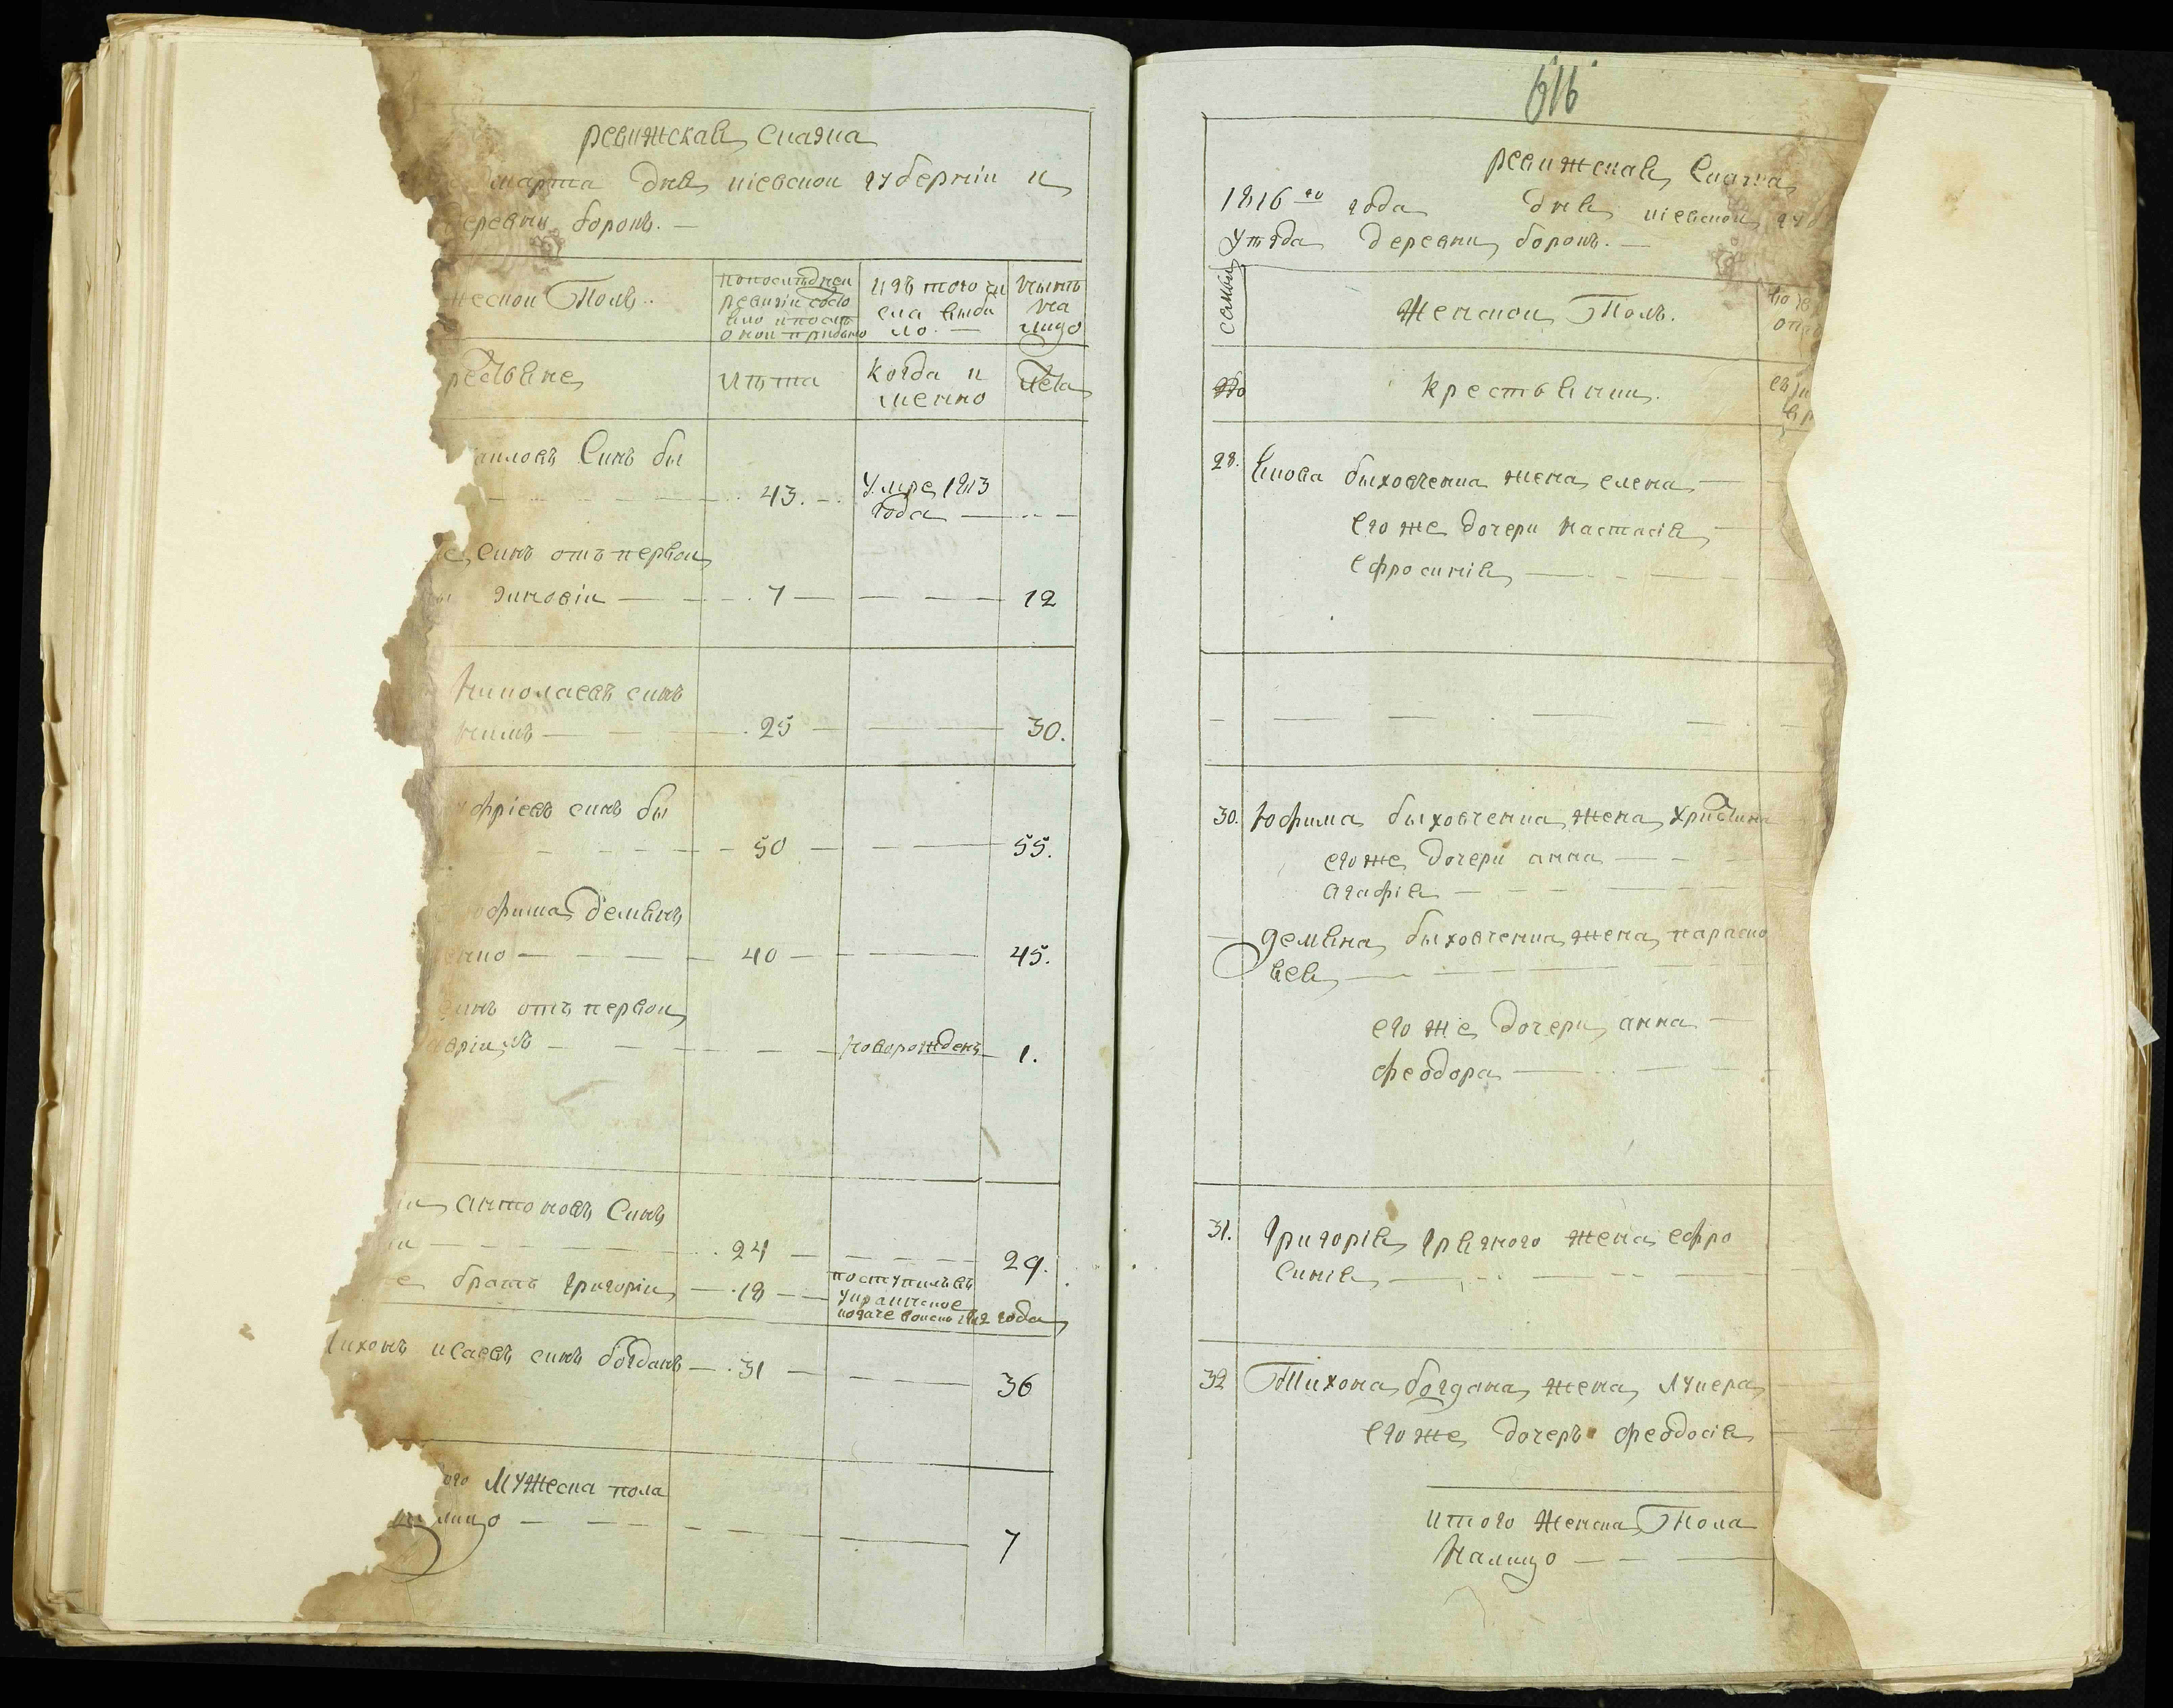 ревижская сказка
марта дня кіевской губерніи и
деревни боровъ. —
жеской Полъ..
попоследней
ревизіи состо
яло и после
оной прибыло
изъ того чи
сла выбы
ло. —
ныне
на
лицо
рестьяне
лѣта
когда и
менно
лета
аиловъ Синъ бы
43. — умре 1813
года
е, синъ отъ первой
зиновіи — 7 — 12
Николаевъ синъ
кимъ — 25 — 30.
уфріевъ синъ бы
50 — 55.
юфима демьянъ
енко — 40 — 45.
синъ отъ первой
авріилъ — новорожденъ — 1.
ій антоновъ Синъ
24 — 29.
е братъ григорій — 18 — поступилъ въ
украинское
козаче войско 1812 года
ихонъ исаевъ синъ богданъ — 31 — 36
ого мужеска пола
лицо — 7
616
ревижская Сказка
1816 го года дня кіевской губ
уезда деревни боровъ. —
семьи
Женской Полъ.
Крестьянки.
28. Якова быховченка жена елена —
Его же дочери настасія —
ефросинія —
30. Юфима быховченка жена христина
его же дочери анна —
агафія —
демяна быховченка жена параско
вея —
его же дочери анна —
феодора —
31. Григорія грязного жена ефро
синія —
32 Тихона богдана жена лукера
Его же дочеръ феодосія
итого женска Пола
налицо —